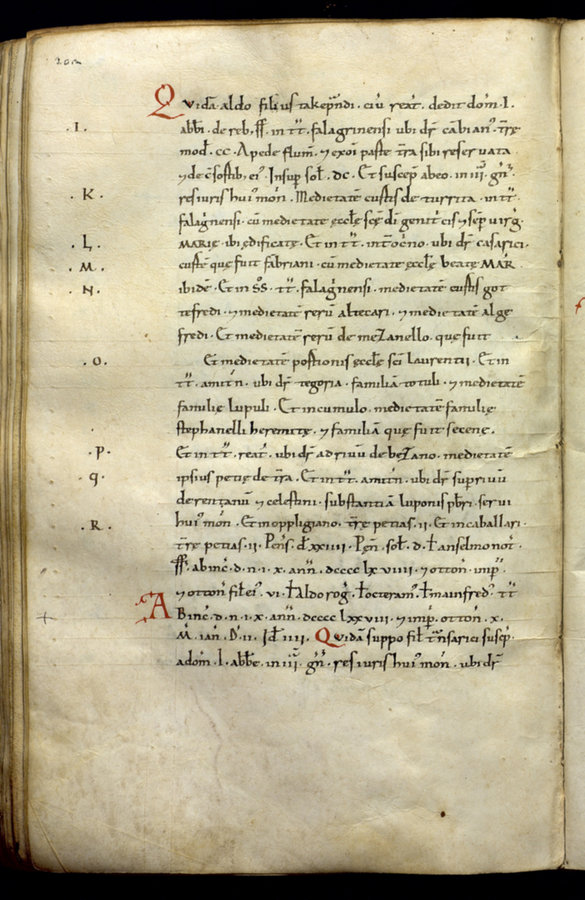 Quidā aldo filius takep̄ndi . ciū reat̄ . dedit dom̄ . I .
. I . abb̄i . de reb; ſſ . in tt̄ . falagrinensi ubi dr̄ cābianꝰ . trę
mod̄ . cc . Apede flum̄ . ⁊ exoī parte t̄ra sibi reseruata
Insup sol̄ . dc . Et suscep̄ abeo . in iii . gn̄ .
. K . res iuris huiꝰ mon̄ . Medietatē curtis de turrita . in tt̄ .
falaḡnensi . cū medietate ęccłę scę dī genit̄cis ⁊ semp uirḡ .
. L . MARIĘ . ibi ędificatę . Et in tt̄ . ubi dr̄ casarici .
. M . curtē quę fuit fabriani . cū medietate ęccłę beatę MAR̄
. N . ibidē . Et in ss . tt̄ . falaḡnensi . medietatē curtis got
tefredi . ⁊ medietatē rerū altecari . ⁊ medietatē alge
fredi . Et medietatē rerū de mezanello . quę fuit
. O . Et medietatē portionis ęccłę sc̄i laurentii . Et in
tt̄ . amit̄n . ubi dr̄ tegoria . familiā totuli . ⁊ medietatē
familię lupuli . Et in cumulo . medietatē familię
stephanelli heremitę . ⁊ familiā quę fuit secene .
. P . Et in tt̄ . reat̄ . ubi dr̄ ad riuū de bezano . medietatē
. q . ipsius petię de t̄ra . Et in tt̄ . amit̄n . ubi dr̄ sup riuū
derentanū ⁊ celestini . substantiā luponis p̄bri . serui
. R . huiꝰ mon̄ . Et in oppligiano . t̄re petias . ii . Et in caballari .
t̄re petias . ii . Pens̄ . d̄ xxiiii . Pen̄ . sol̄ . d . ł anselmo not̄ .
ſſ . ab inc̄ . d . n . i . x . ann̄ . dcccc lxviiii . ⁊ otton̄ . imp̄
⁊ otton̄ . fil̄ eiꝰ . vi . ł Aldo roḡ . ł octeram̄ . ł mainfred̄ . tt̄
AB inc̄ . d . n . i . x . ann̄ . dcccc lxxviii . ⁊ imp̄ . otton̄ . x .
M̄ . ian̄ . D . ii . Id̄ iiii . Quidā suppo fil̄ suscep̄ .
a dom̄ . I . abb̄e . in iii . gn̄ . res iuris huiꝰ mon̄ . ubi dr̄